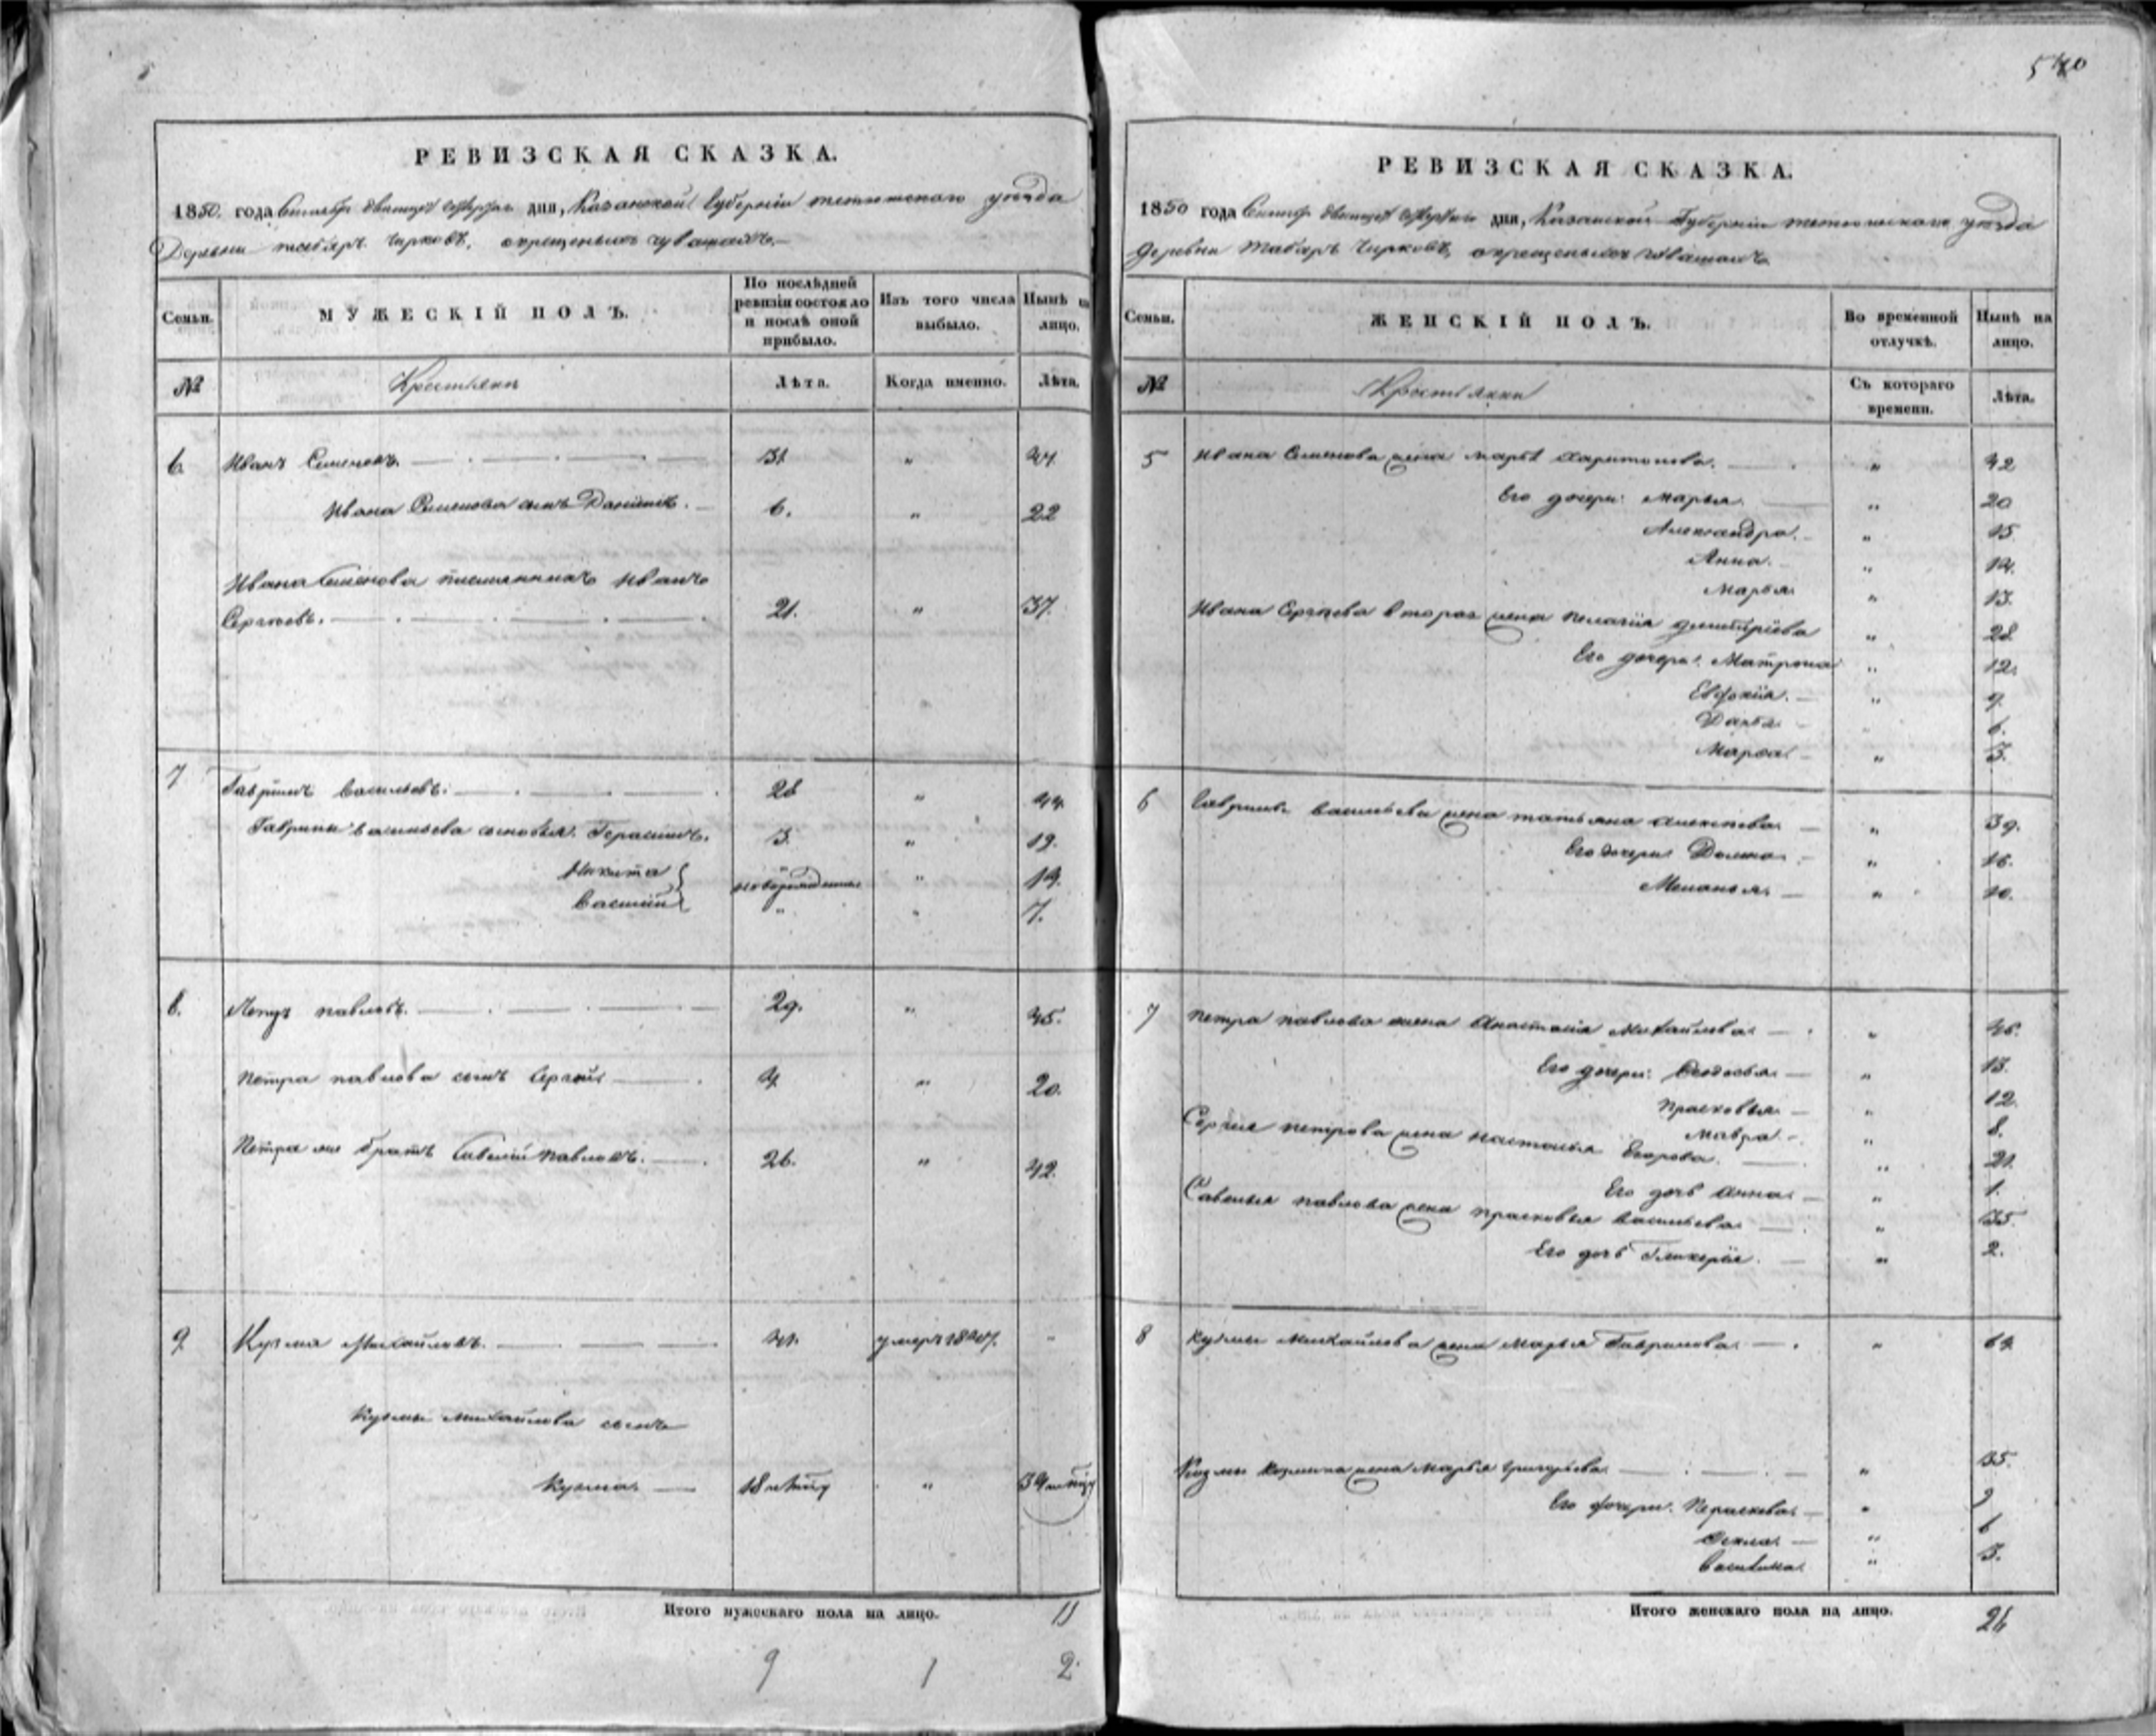 570
РЕВИЗСКАЯ СКАЗКА.
1850 года Сентября двадцать четвертаго дня, Казанской Губерніи тетюшскаго уѣзда
Деревни Чирковъ, окрещеныхъ чувашахъ.
Семьи.
МУЖЕСКІЙ ПОЛЪ.
По послѣдней ревизіи состояло и послѣ оной прибыло.
Изъ того числа выбыло.
Нынѣ на лицо.
№
Крестьяне
Лѣта.
Когда именно.
Лѣта.
6. Иванъ Семеновъ. 31 „ 47
Ивана Семенова сынъ Даніилъ. 6. „ 22
Ивана Семенова племянникъ Иванъ
Сергѣевъ. 21. „ 37.
7 Гаврилъ Васильевъ. 28 „ 44
Гаврилы Васильева сыновья. Герасимъ. 3. „ 19.
Никита новорожденные „ 14.
Василій „ „ 7.
8. Петръ павловъ. 29. „ 45.
Петра павлова сынъ Сергѣй 4 „ 20.
Петра же братъ Савелій Павловъ. 26. „ 42.
9 Кузма Михайловъ. 41. умеръ 1847. „
Кузмы Михайлова сынъ
Кузма 18 „ 34
Итого мужескаго пола на лицо. 11
9 1 2
РЕВИЗСКАЯ СКАЗКА.
1850 года Сентяб. двадцать четвертаго дня, Казанской Губерніи тетюшскаго уѣзда
деревни Табаръ Чирковъ, окрещеныхъ чувашахъ
Семьи.
ЖЕНСКІЙ ПОЛЪ.
Во временной отлучкѣ.
Нынѣ на лицо.
№
Крестьянки
Съ котораго времени.
Лѣта.
5 Ивана Семенова жена Марья Харитонова. „ 42
Его дочери: Марья. „ 20
Александра. „ 15
Анна. „ 14.
Марья „ 13.
Ивана Сергѣева вторая жена Пелагия Димитріева „ 28
Его дочери: Матрона „ 12.
Евдокія. „ 9
Дарья 6.
Марѳа „ 3.
6 Гаврилы Васильева жена татьяна Алексѣева „ 39.
Его дочери Домна „ 16.
Меланья „ 10.
7 Петра павлова жена Анастасія Михайлова „ 46.
Его дочери: Ѳеодосья „ 13.
Прасковья „ 12.
Мавра „ 8.
Сергѣя петрова жена Настасья Егорова. „ 21
Его дочь Анна „ 1.
Савелья павлова жена прасковья Васильева „ 35.
Его дочь Гликерія. „ 2.
8 Кузмы Михайлова жена Марья Гаврилова „ 64
Козмы Козмина жена Марья Григорьева „ 35.
Его дочери. Параскева „ 9
Ѳекла „ 6
Василиса „ 3.
Итого женскаго пола на лицо. 26